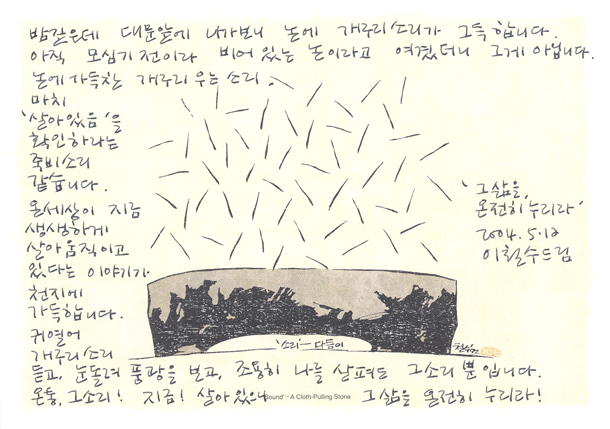 밤깊은데 대문앞에 나가보니 논에 개구리소리가 그득합니다.
아직 모심기전이라 비어있는 논이라고 여겼더니 그게 아닙니다.
논에 가득찬 개구리 우는 소리.
마치
'살아있음'을
확인하라는
죽비소리
같습니다.
온세상이 지금
생생하게
살아 움직이고
있다는 이야기가
천지에
가득합니다.
귀열어
개구리소리
듣고, 눈돌려 풍광을 보고, 조용히 나를 살펴도 그소리 뿐입니다.
온통, 그소리! 지금! 살아있으니 그삶을 온전히 누리라!
'그삶을,
온전히 누리라'
2004. 5. 12
이철수드림
'소리' – 다듬이
Sound' – A Cloth-Pulling Stone